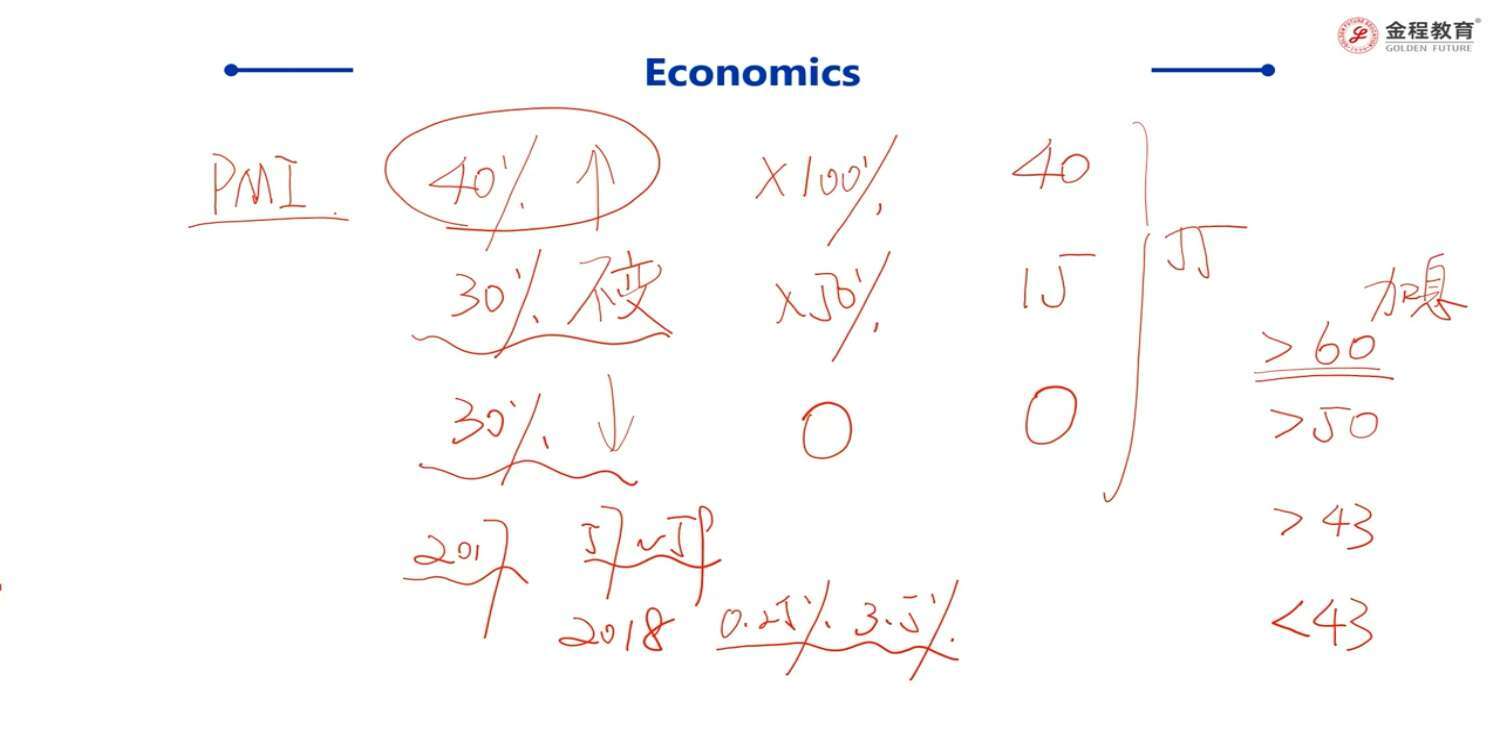 金程教育
GOLDEN FUTURE
Economics
PMI 40% ↑ ×100% 40
30% 不变 ×50% 15 55
30% ↓ 0 0
加息
>60
>50
>43
<43
2017 57~59
2018 0.25% 3.5%